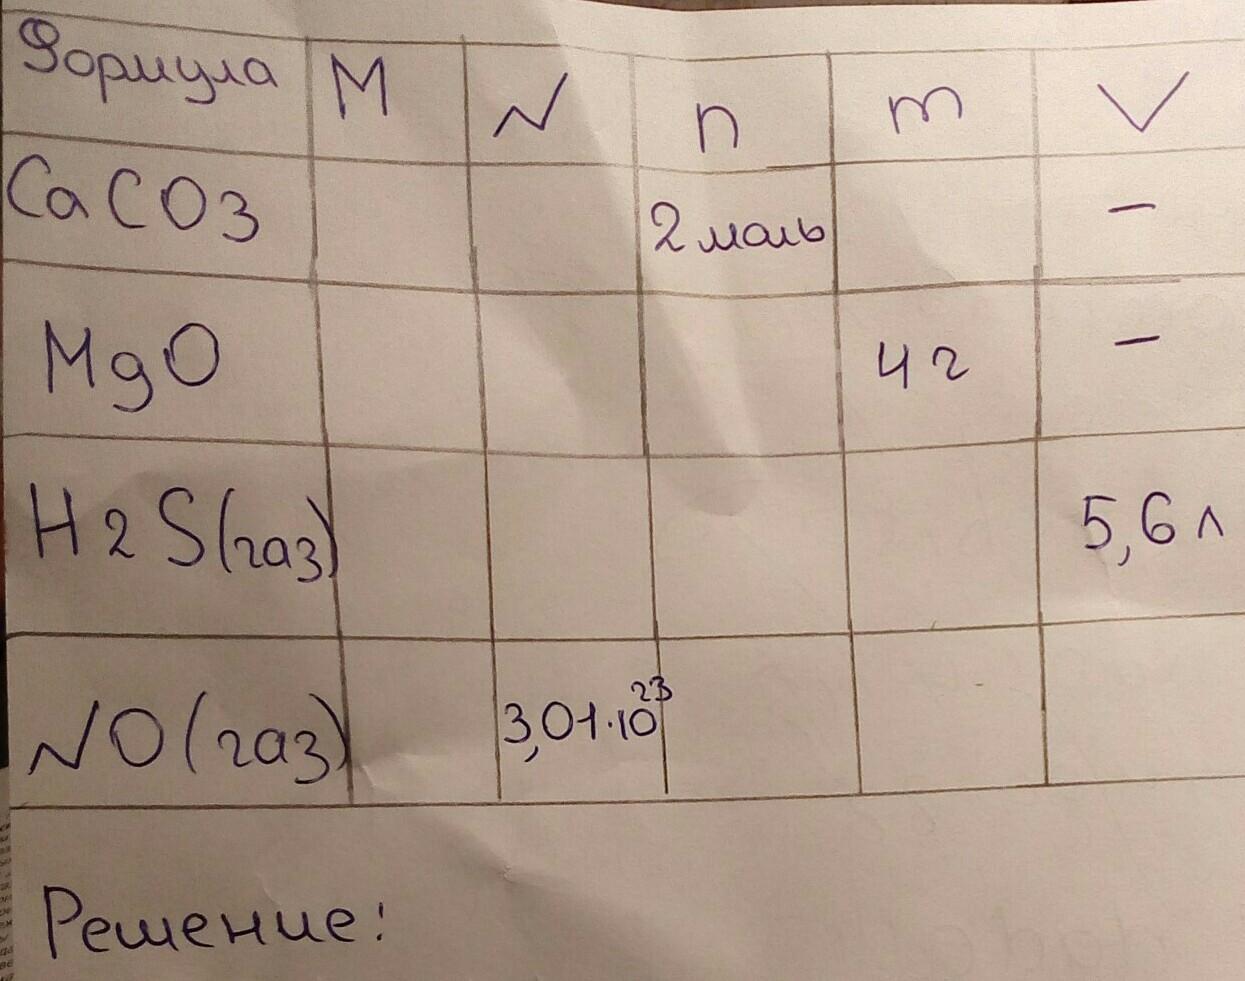 Формула M N n m V
CaCO3 2 моль —
MgO 4 г —
H2S(газ) 5,6 л
NO(газ) 3,01·10²³
Решение: